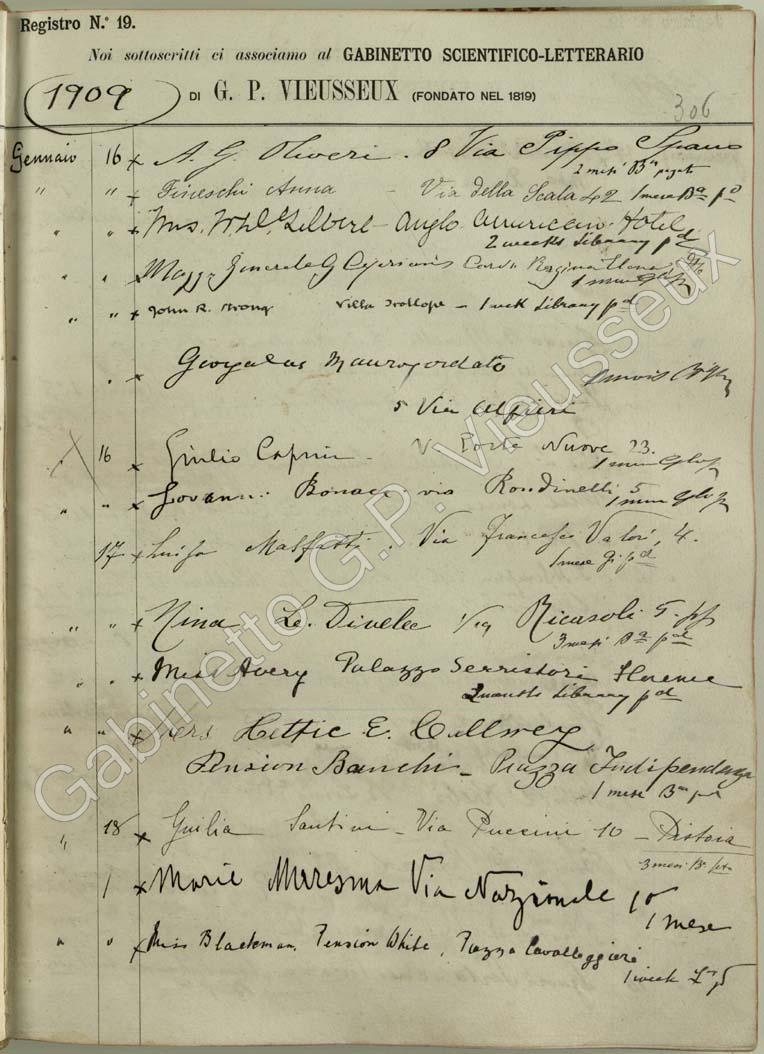 Registro N.º 19.
Noi sottoscritti ci associamo al GABINETTO SCIENTIFICO-LETTERARIO
1909
DI G. P. VIEUSSEUX (FONDATO NEL 1819)
306
Gennaio 16 x A. G. Oliveri. 8 Via Pippo Spano
2 mesi Bca pagati
" " x Fineschi Anna - Via della Scala 42 1 mese Bca pd
" " x Mrs. Gilbert - Anglo American Hotel
2 weeks Library pd
" " x Magg. Generale G Regina Elena
1 mese
" " x John R. Villa Trollope - 1 week Library pd
" x Maurogordato
5 Via Alfieri
" 16 x Giulio Caprin - V. Porte Nuove 23.
1 mese
" " x Giovanni Bonacci via Rondinelli 5
1 mese
17 x Luisa Malfatti. Via Francesco Valori, 4.
1 mese G. pd
" " x Nina Le Divelec Via Ricasoli 5. pp
3 mesi Bca pd
" " x Miss Avery Palazzo Serristori Florence
2 months Library pd
" " x Hettie E.
Pension Banchi - Piazza Indipendenza
1 mese Bca pd
" 18 x Giulia Santini - Via Puccini 10 - Pistoia
3 mesi
x Marie Via Nazionale 10
1 mese
" " x Miss Blackman, Pension White, Piazza Cavalleggieri
1 week
Gabinetto G.P. Vieusseux